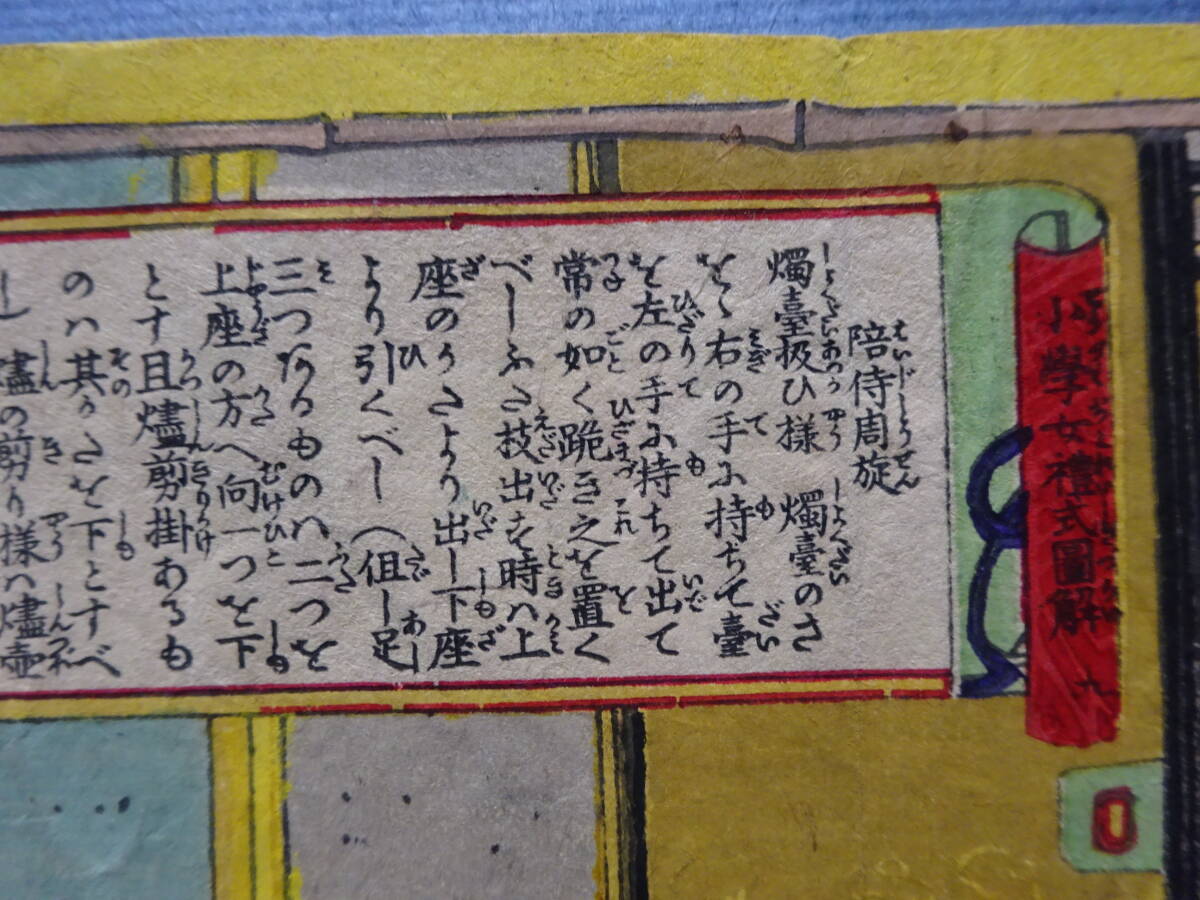 小學女禮式圖解 九
陪侍周旋
燭臺扱ひ様 燭臺のさ
を右の手に持ちて臺
を左の手に持ちて出て
常の如く跪き之を置く
べしふさ技出す時ハ上
座のうさより出し下座
より引くべし(但し足
三つなるものハ二つを
上座の方へ向一つを下
とす且燼剪掛あるも
のハ其うさを下とすべ
し 燼の剪り様ハ燼壺